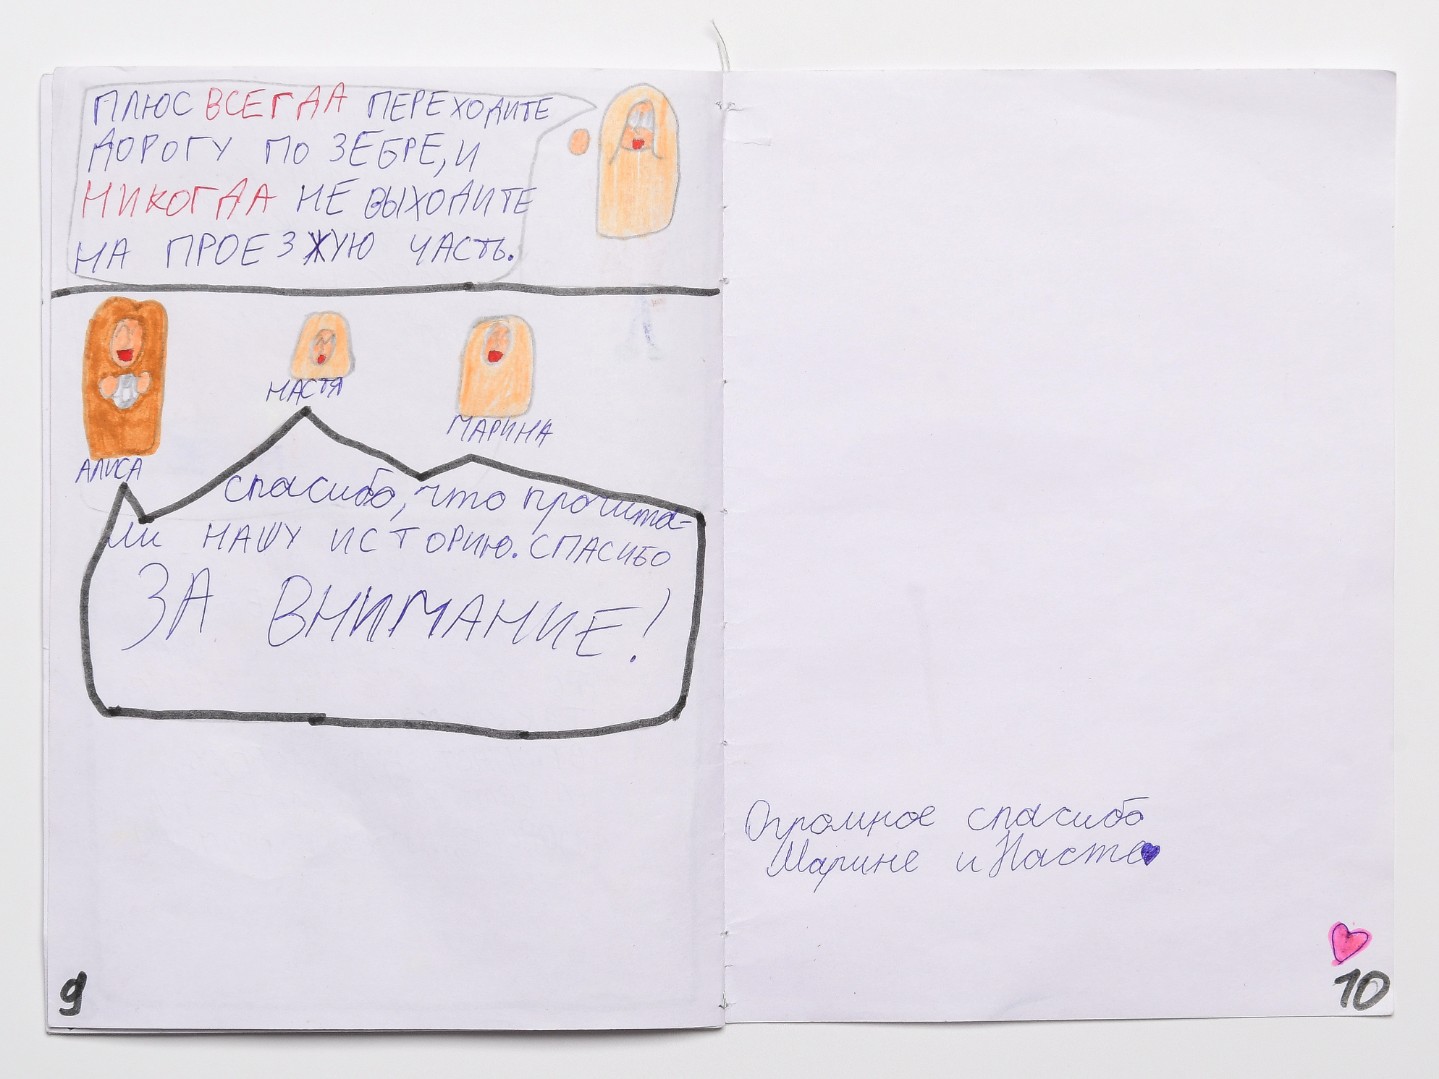 ПЛЮС ВСЕГДА ПЕРЕХОДИТЕ
ДОРОГУ ПО ЗЕБРЕ, И
НИКОГДА НЕ ВЫХОДИТЕ
НА ПРОЕЗЖУЮ ЧАСТЬ.
АЛИСА
НАСТЯ
МАРИНА
спасибо, что прочита-
ли НАШУ ИСТОРИЮ. СПАСИБО
ЗА ВНИМАНИЕ!
9
Огромное спасибо
Марине и Насте
10